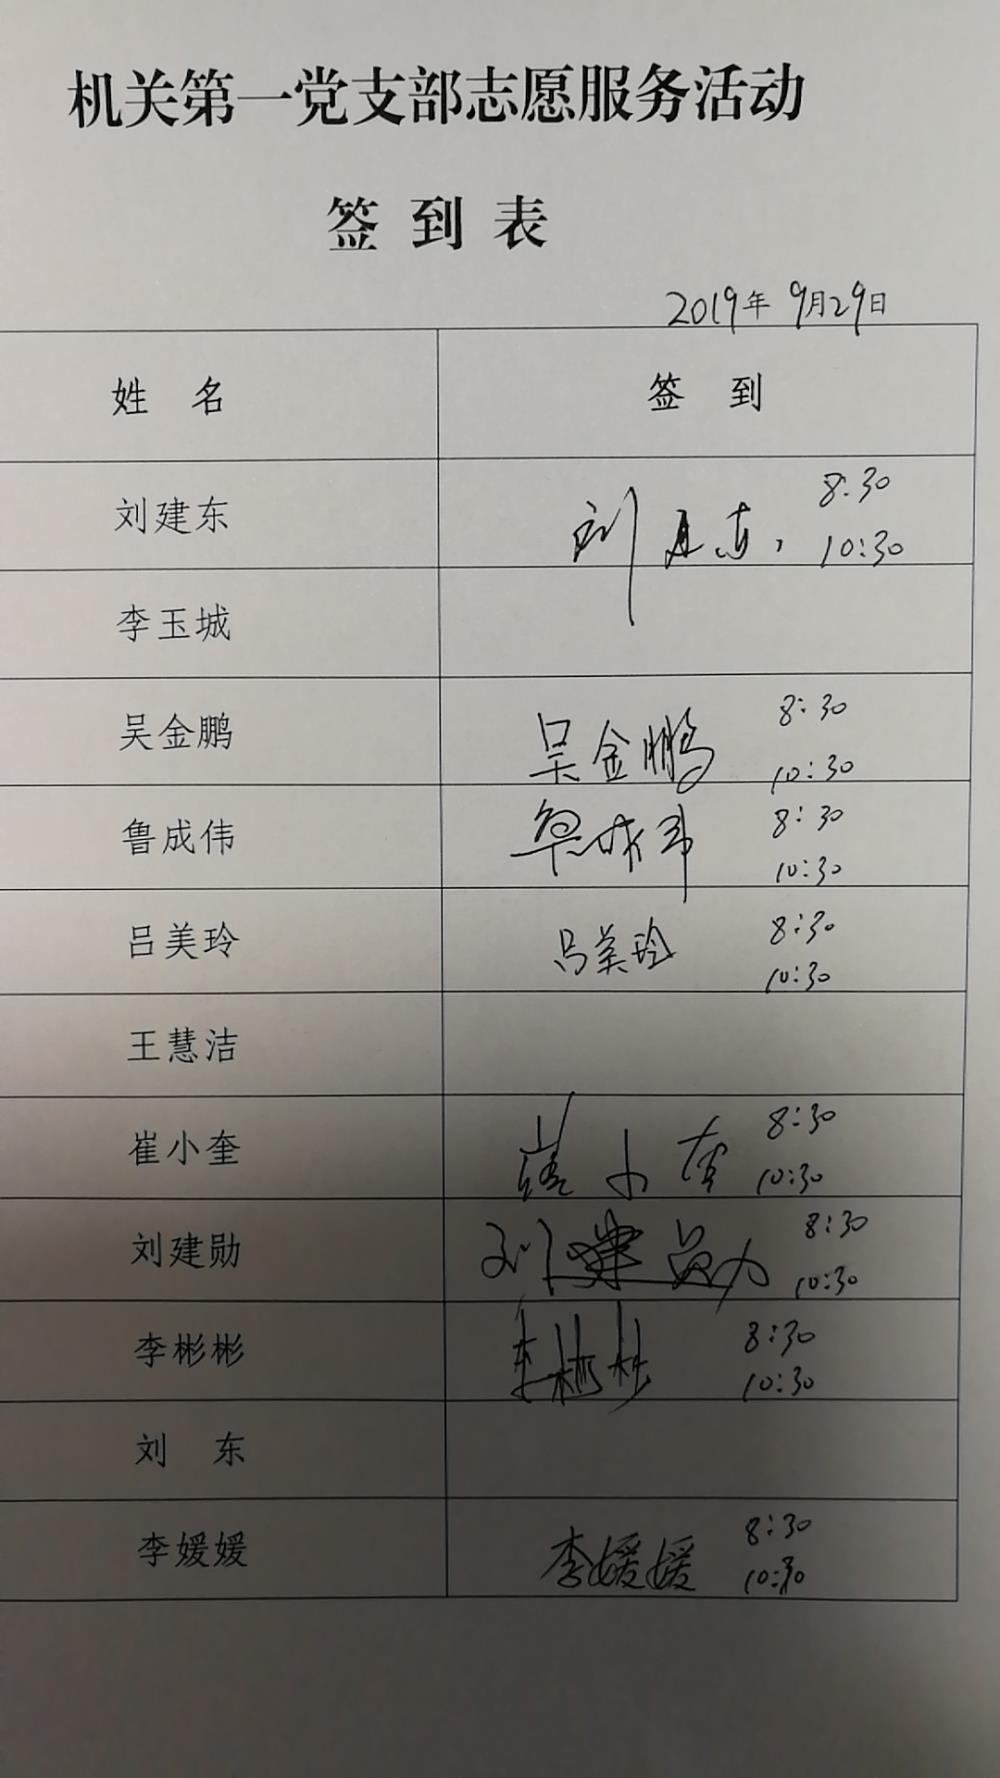 机关第一党支部志愿服务活动
签 到 表
2019年 9月29日
姓 名 签 到
刘建东 刘建东, 8:30
10:30
李玉城
吴金鹏 吴金鹏 8:30
10:30
鲁成伟 鲁成伟 8:30
10:30
吕美玲 吕美玲 8:30
10:30
王慧洁
崔小奎 崔小奎 8:30
10:30
刘建勋 刘建勋 8:30
10:30
李彬彬 李彬彬 8:30
10:30
刘 东
李媛媛 李媛媛 8:30
10:30